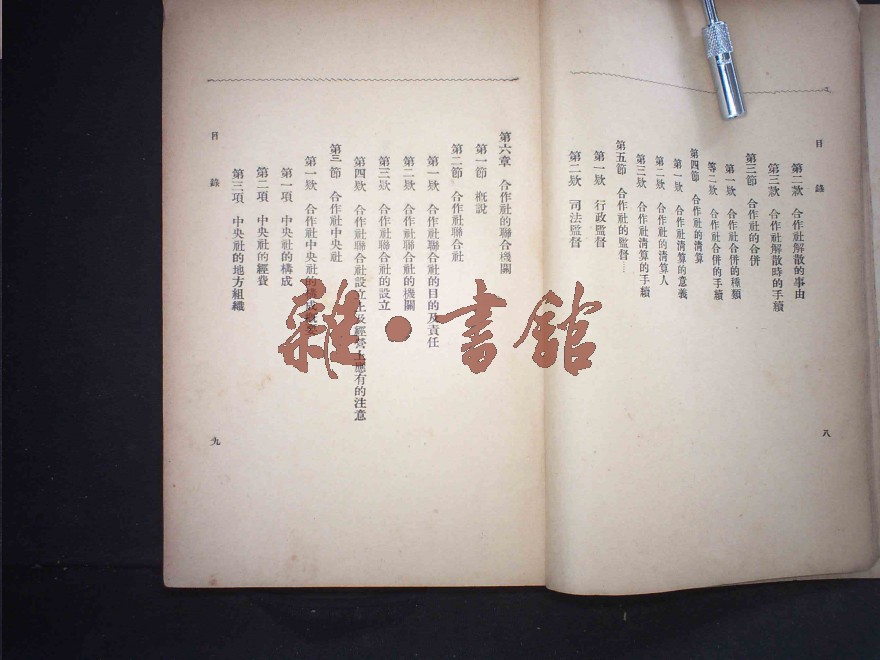 目錄
第二款 合作社解散的事由
第三款 合作社解散時的手續
第三節 合作社的合併
第一款 合作社合併的種類
等二款 合作社合併的手續
第四節 合作社的清算
第一款 合作社清算的意義
第二款 合作社的清算人
第三款 合作社清算的手續
第五節 合作社的監督
第一款 行政監督
第二款 司法監督
八
第六章 合作社的聯合機關
第一節 概說
第二節 合作社聯合社
第一款 合作社聯合社的目的及責任
第二款 合作社聯合社的機關
第三款 合作社聯合社的設立
第四款 合作社聯合社設立上及經營上應有的注意
第三節 合作社中央社
第一款 合作社中央社的構成
第一項 中央社的構成
第二項 中央社的經費
第三項 中央社的地方組織
目錄
九
雜·書館